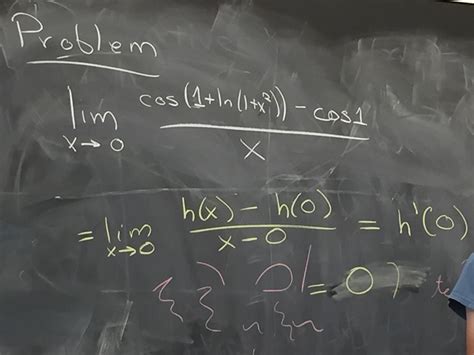 Problem
lim x→0 (cos(1+ln(1+x²)) - cos1) / x
= lim x→0 (h(x) - h(0)) / (x-0) = h'(0)
= 0